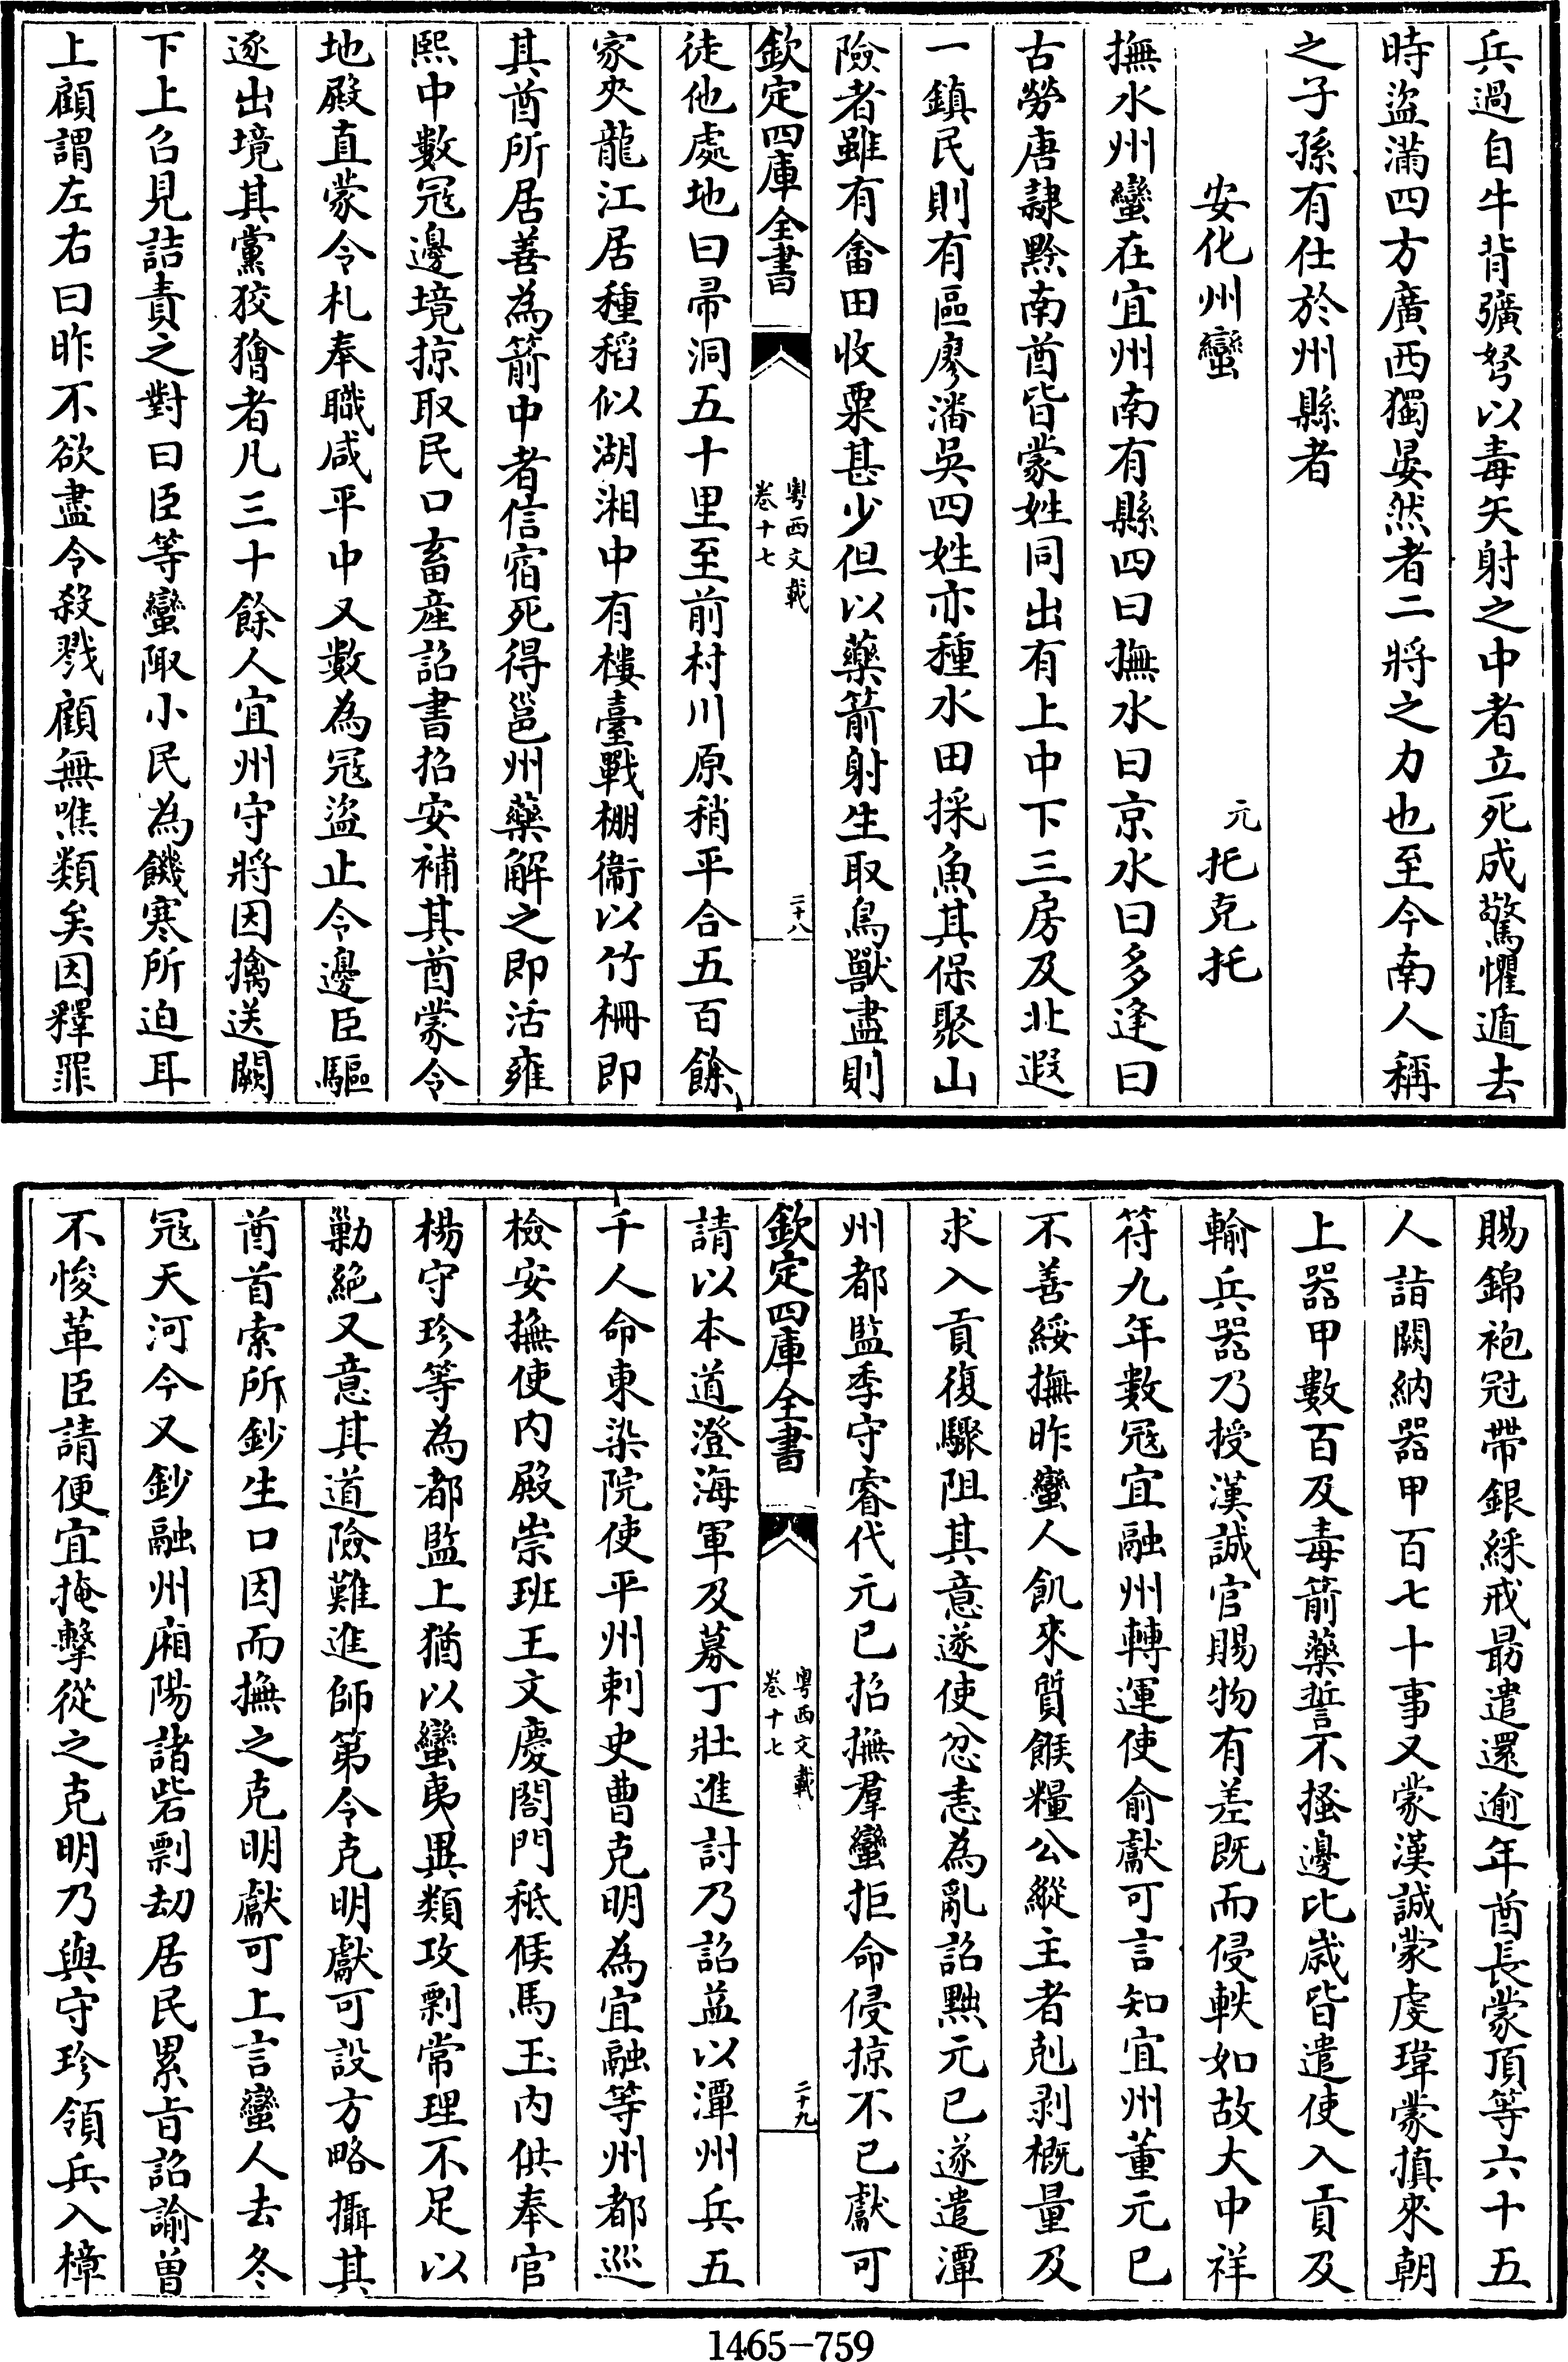 兵過自牛背彍弩以毒矢射之中者立死成驚懼遁去
時盜滿四方廣西獨晏然者二將之力也至今南人稱
之子孫有仕於州縣者
安化州蠻
元托克托
撫水州蠻在宜州南有縣四曰撫水曰京水曰多逢曰
古勞唐隸黔南酋皆蒙姓同出有上中下三房及北遐
一鎮民則有區廖潘吳四姓亦種水田採魚其保聚山
險者雖有畬田收粟甚少但以藥箭射生取鳥獸盡則
欽定四庫全書
粤西文載
卷十七
二十八
徒他處地曰帚洞五十里至前村川原稍平合五百餘
家夾龍江居種稻似湖湘中有樓臺戰棚衞以竹柵即
其酋所居善為箭中者信宿死得邕州藥解之即活雍
熙中數冦邊境掠取民口畜産詔書招安補其酋蒙令
地殿直蒙令札奉職咸平中又數為冦盜止令邊臣驅
逐出境其黨狡獪者凡三十餘人宜州守將因擒送闕
下上召見詰責之對曰臣等蠻陬小民為饑寒所迫耳
上顧謂左右曰昨不欲盡令殺戮顧無噍類矣因釋罪
賜錦袍冠帶銀綵戒朂遣還逾年酋長蒙頂等六十五
人詣闕納器甲百七十事又蒙漢誠蒙虔瑋蒙填來朝
上器甲數百及毒箭藥誓不搔邊比嵗皆遣使入貢及
輸兵器乃授漢誠官賜物有差既而侵軼如故大中祥
符九年數冦宜融州轉運使俞獻可言知宜州董元已
不善綏撫昨蠻人飢來質餱糧公縱主者剋剥概量及
求入貢復驟阻其意遂使忿恚為亂詔黜元已遂遣潭
州都監季守睿代元已招撫羣蠻拒命侵掠不已獻可
欽定四庫全書
粤西文載
卷十七
二十九
請以本道澄海軍及募丁壯進討乃詔益以潭州兵五
千人命東染院使平州刺史曹克明為宜融等州都巡
檢安撫使内殿崇班王文慶閤門祗候馬玉内供奉官
楊守珍等為都監上猶以蠻夷異類攻剽常理不足以
勦絶又意其道險難進師第令克明獻可設方略攝其
酋首索所鈔生口因而撫之克明獻可上言蠻人去冬
冦天河今又鈔融州廂陽諸砦剽刼居民累㫖詔諭曽
不悛革臣請便宜掩擊從之克明乃與守珍領兵入樟
1465-759